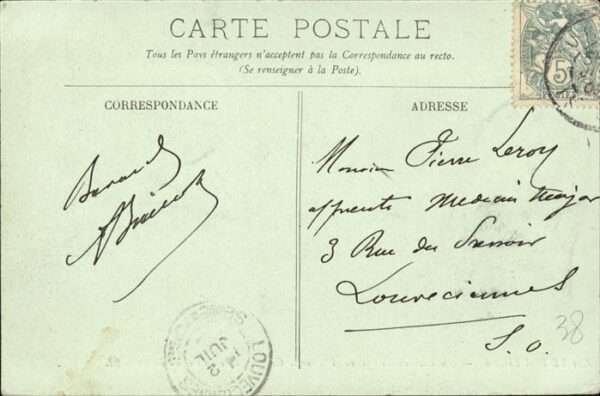 CARTE POSTALE
Tous les Pays étrangers n'acceptent pas la Correspondance au recto.
(Se renseigner à la Poste).
CORRESPONDANCE
ADRESSE
5
Monsieur Pierre Leroy
apprenti Medecin Major
3 Rue du Pressoir
Louveciennes
S. O.
38
LOUVECIENNES
2
JUIL